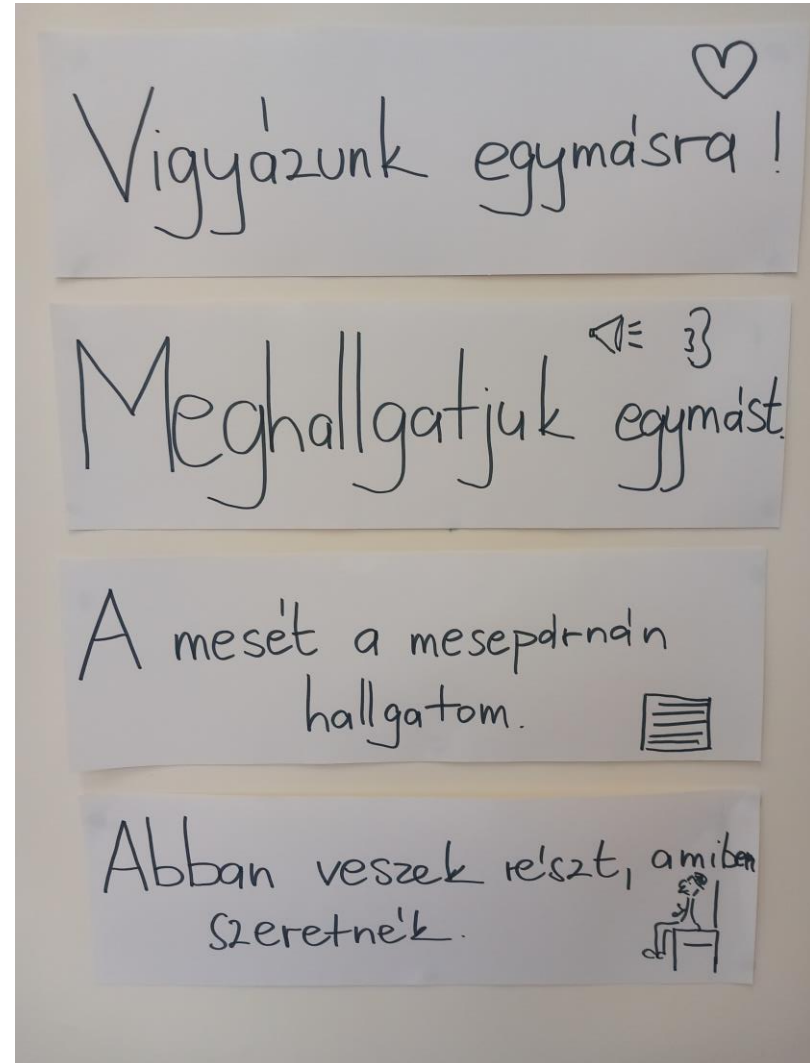 Vigyázunk egymásra !
Meghallgatjuk egymást.
A mesét a mesepárnán
hallgatom.
Abban veszek részt, amiben
szeretnék.